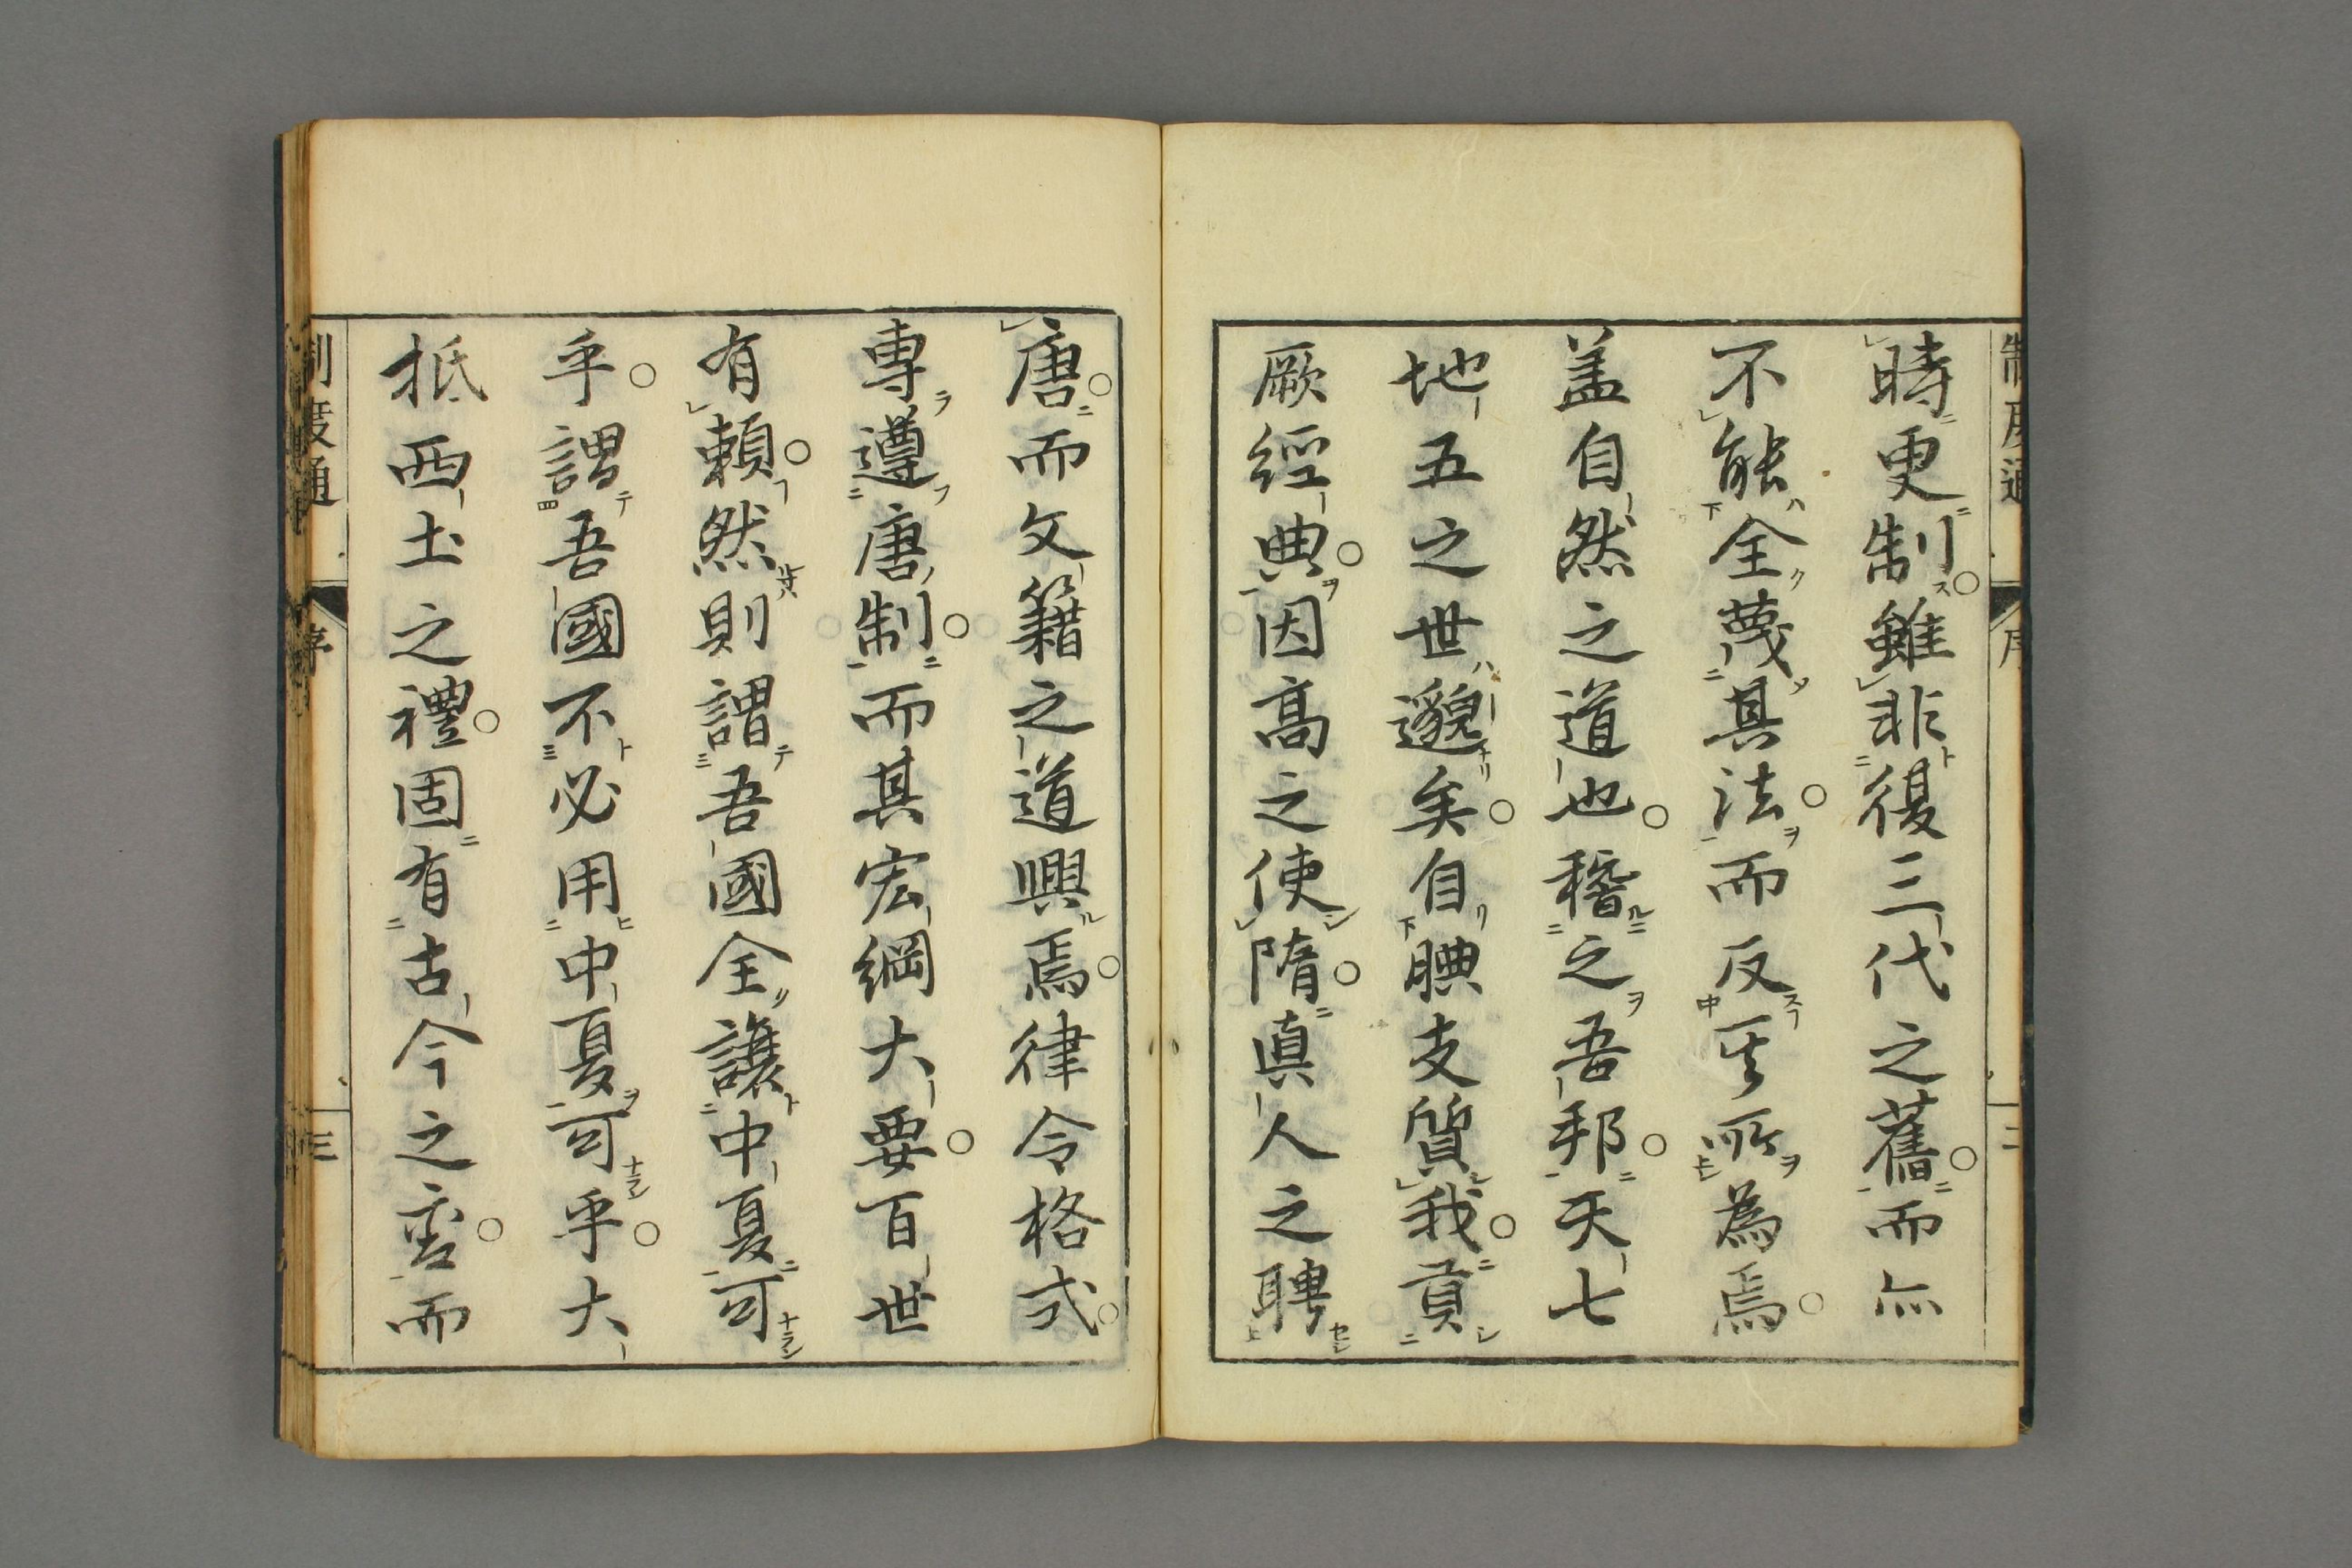 時更制雖非復三代之舊而亦
不能全蔑其法而反其所為焉
盖自然之道也稽之吾邦天七
地五之世邈矣自腆支質我貢
厥經典因高之使隋真人之聘
唐而文籍之道興焉律令格式
專遵唐制而其宏綱大要百世
有賴然則謂吾國全讓中夏可
乎謂吾國不必用中夏可乎大
抵西土之禮固有古今之異而
制度通
序
三